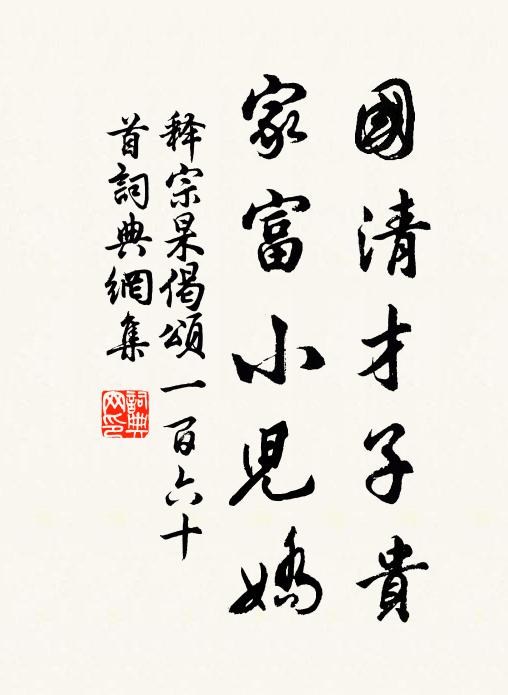 國清才子貴
家富小兒嬌
释宗杲偈頌一百六十
首詞典網集
詞典
网印